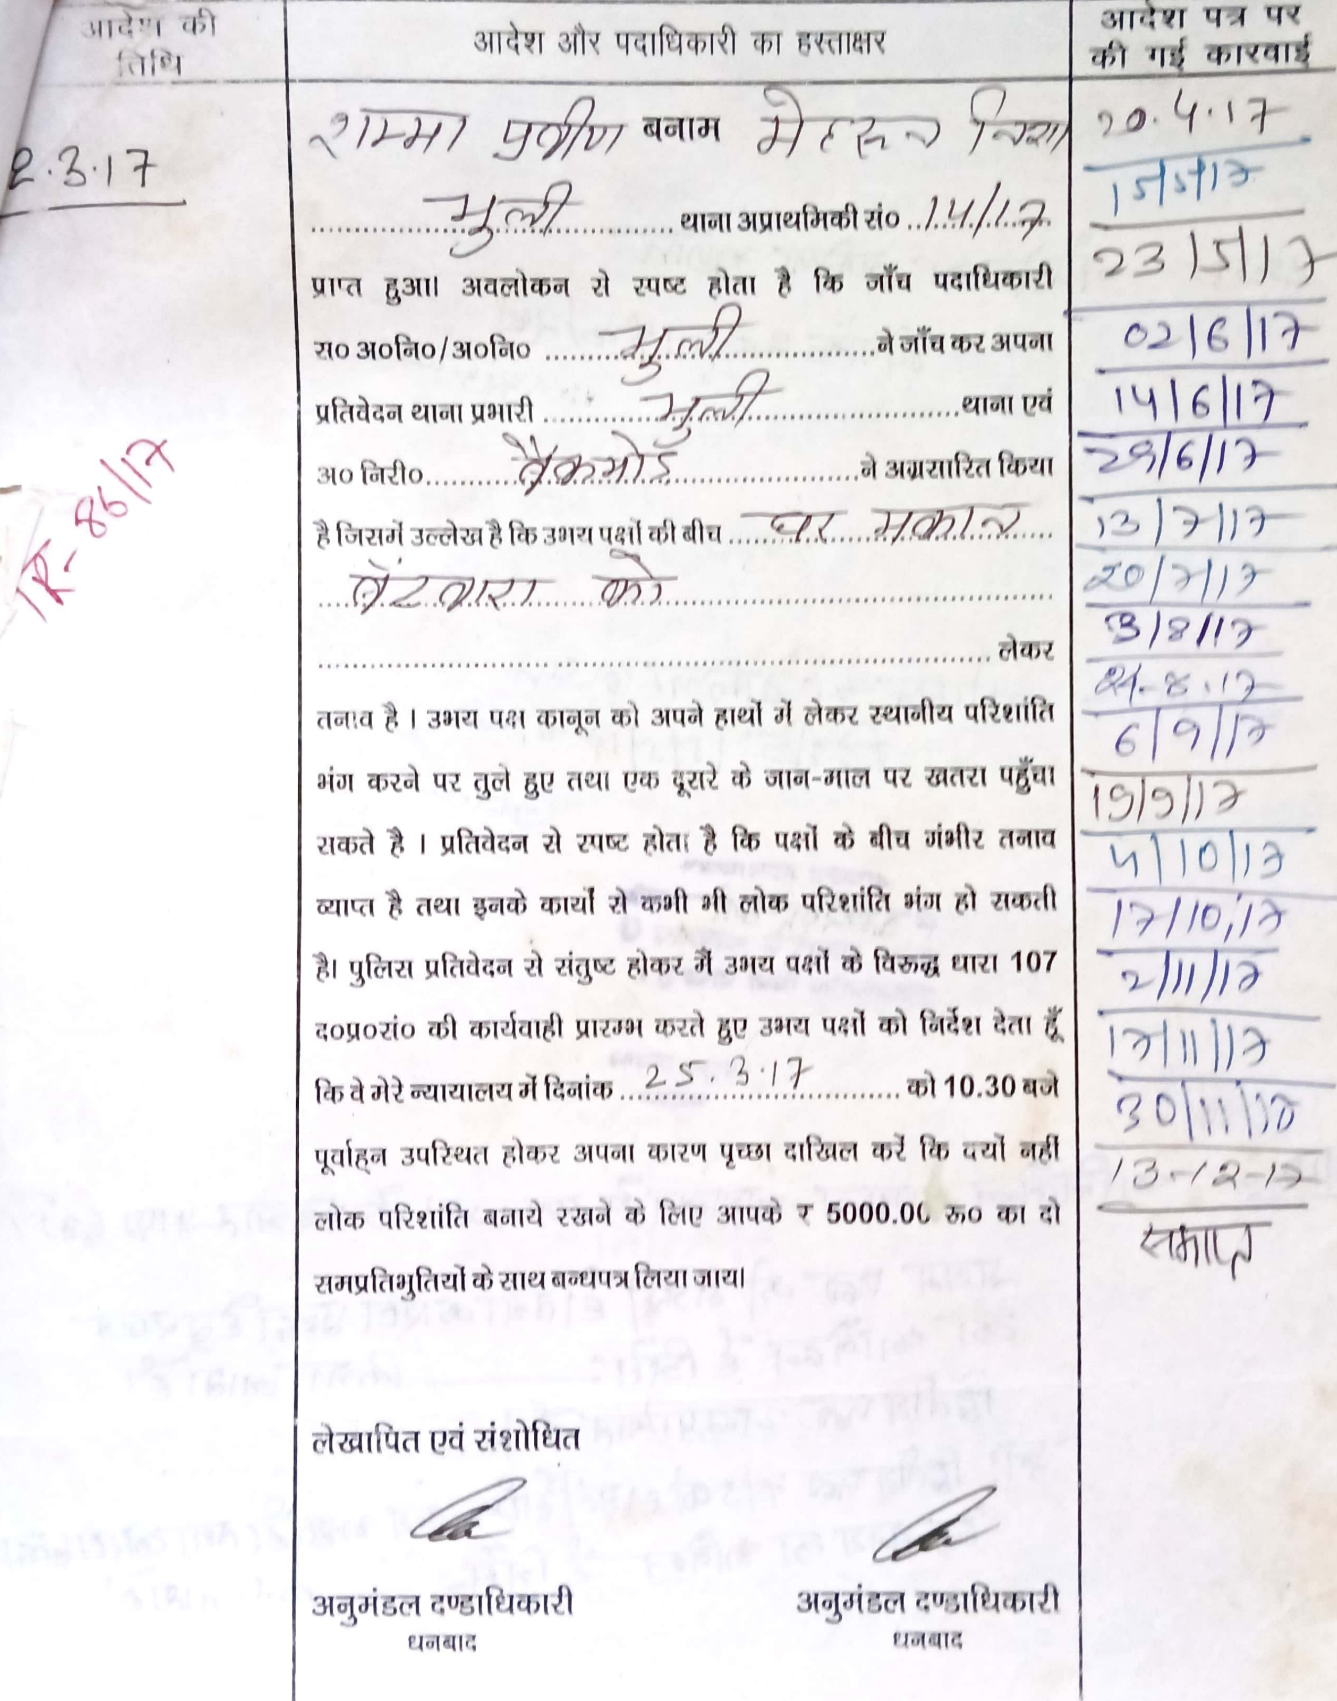 आदेश की
तिथि
आदेश और पदाधिकारी का हस्ताक्षर
आदेश पत्र पर
की गई कारवाई
2.3.17
TR-86/17
शम्मा प्रवीण बनाम मेहरून निशा
भुली थाना अप्राथमिकी सं० 14/17
प्राप्त हुआ। अवलोकन से स्पष्ट होता है कि जाँच पदाधिकारी
स० अ०नि०/अ०नि० भुली ने जाँच कर अपना
प्रतिवेदन थाना प्रभारी भुली थाना एवं
अ० निरी० बैंकमोड़ ने अग्रसारित किया
है जिसमें उल्लेख है कि उभय पक्षों की बीच घर मकान
बँटवारा को
लेकर
तनाव है । उभय पक्ष कानून को अपने हाथों में लेकर स्थानीय परिशांति
भंग करने पर तुले हुए तथा एक दूसरे के जान-माल पर खतरा पहुँचा
सकते है । प्रतिवेदन से स्पष्ट होता है कि पक्षों के बीच गंभीर तनाव
व्याप्त है तथा इनके कार्यों से कभी भी लोक परिशांति भंग हो सकती
है। पुलिस प्रतिवेदन से संतुष्ट होकर मैं उभय पक्षों के विरूद्ध धारा 107
द०प्र०सं० की कार्यवाही प्रारम्भ करते हुए उभय पक्षों को निर्देश देता हूँ
कि वे मेरे न्यायालय में दिनांक 25.3.17 को 10.30 बजे
पूर्वाह्न उपस्थित होकर अपना कारण पृच्छा दाखिल करें कि क्यों नहीं
लोक परिशांति बनाये रखने के लिए आपके ₹ 5000.00 रू० का दो
समप्रतिभुतियों के साथ बन्धपत्र लिया जाय।
लेखापित एवं संशोधित
अनुमंडल दण्डाधिकारी
धनबाद
अनुमंडल दण्डाधिकारी
धनबाद
20.4.17
15/5/17
23/5/17
02/6/17
14/6/17
29/6/17
13/7/17
20/7/17
3/8/17
21-8.17
6/9/17
19/9/17
4/10/17
17/10/17
2/11/17
17/11/17
30/11/17
13-12-17
समाप्त